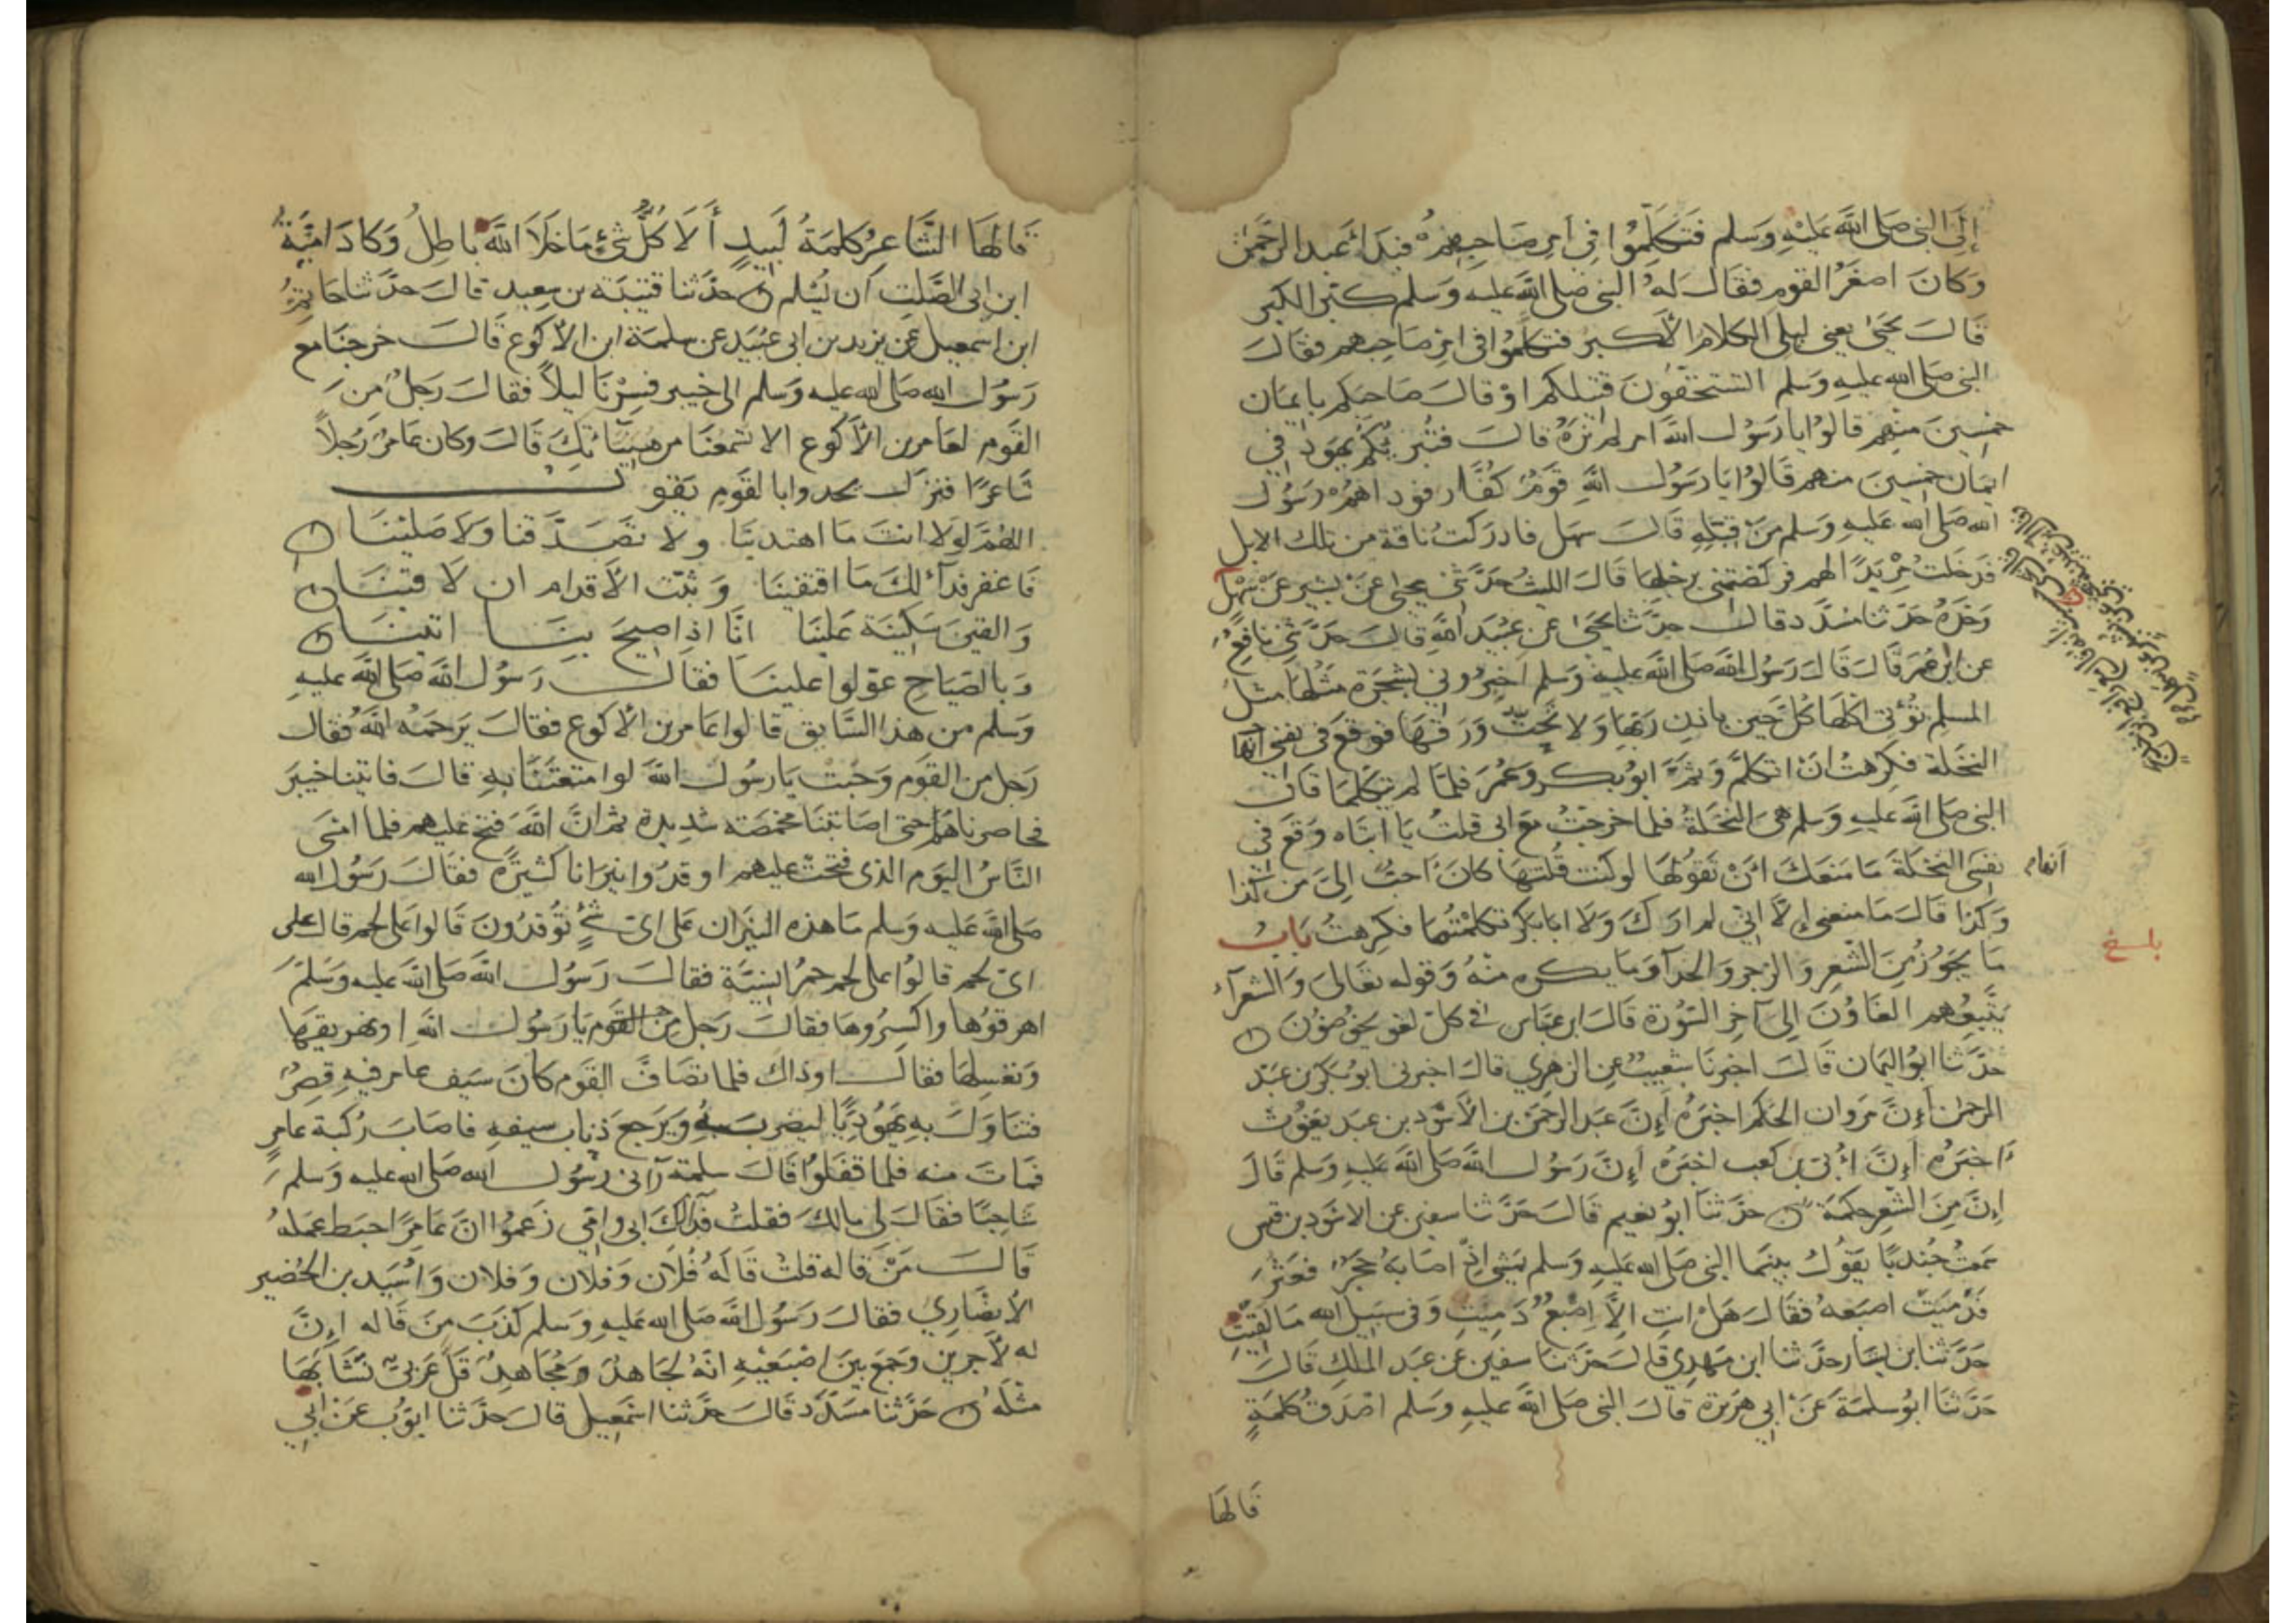 إِلَى النبي صَلى اللَّه عَليْهِ وَسَلم فَتَكَلَّمُوا فِي أمرِ صَاحِبِهِمْ فبَدَأ عَبد الرَّحمٰن
وَكانَ اصغَرُ القومِ فقَالَ لهُ النبى صَلى اللَّه عليه وَسَلم كبّر الكبر
قَالَ يحيَى يعنى ليلى الكلامَ الأكبرُ فتكلمُوا فى امرِ صَاحبهم فقَالَ
النبى صَلى الله عليه وَسلم اتستحقّونَ قتيلكم اوْ قالَ صَاحبكم بايمَان
خمسِينَ منهم قالوُا يا رَسُول اللَّه امر لم نرَهُ قالَ فتُبرئكُم يهود فى
ايمَان خمسِينَ منهم قَالوُا يَا رَسُول اللَّهِ قَومٌ كفَّار فوداهُمْ رَسُول
الله صَلى الله عَليهِ وَسلم منْ قِبَلِهِ قَالَ سَهل فادرَكتُ ناقة من تلك الابل
فدَخلت مِرْبَدًا لهم فركضَتنى برجلِهَا قَالَ الليثُ حَدَّثنى يحيَى عَنْ بشير عَنْ سَهْل
وَحْدَهُ حَدَّثنا مسَدَّد قالَ حدَّثنا يحيَى عن عبَيْد اللَّهِ قالَ حَدَّثَنِى نافعٌ
عن ابن عُمَر قَالَ قَالَ رَسُول اللَّه صَلى اللَّه عليهِ وَسلم اخبرُونى بشجَرَة مثلهَا مثل
المسلم تؤتى اكلهَا كُلّ حِين باذن ربّهَا وَلا تحتّ وَرَقهَا فوقعَ فى نفسى انها
النخلة فكرِهتُ انْ اتكلّم وَثمّ ابوُ بكر وَعُمَر فلمّا لم يتكلّمَا قالَ
النبى صَلى اللَّه عليهِ وَسلم هى النخلةُ فلما خرجتُ مَعَ ابى قلتُ يَا ابتَاه وَقعَ فى
نفسى النخلة مَا منعَكَ انْ تقوُلهَا لو كنت قُلتهَا كانَ احبّ الىّ من كذا
وَكذا قَالَ مَا منعنى إلاَّ انّى لم ارَكَ وَلا ابا بكر تكلمْتُمَا فكرِهتُ بَابُ
مَا يجُوز مِنَ الشّعِر وَالرّجز وَالحدآء وَمَا يكره منْهُ وَقوله تعَالى وَالشعرآء
يَتَّبِعُهم الغَاوُنَ الى آخِر السّورة قَالَ ابن عبّاس فى كلّ لغو يخوُضوُنَ
حدَّثنا ابوُ اليَمان قَالَ اخبرنَا شعَيبٌ عن الزهِرى قالَ اخبرنى ابوُ بَكر بن عَبْد
الرحمٰن أنَّ مَروان الحَكم اخبَرَهُ أنَّ عَبد الرحمٰن بن الأسْود بن عَبد يغوُث
اخبَرَهُ أنَّ أبىّ بن كعب اخبَرَهُ أنَّ رَسوُل اللَّه صَلى اللَّه عَليهِ وَسلم قَالَ
إنَّ مِنَ الشّعِر حكمَة حدَّثنا ابوُ نعيم قَالَ حَدَّثنا سفين عن الاسْود بن قيس
سَمعتُ جُندبًا يقوُل بينمَا النبى صَلى الله عَليهِ وَسلم يمشِى اذْ اصَابهُ حَجَرٌ فعَثرَ
فدَميَتْ اصبَعهُ فقَالَ هَلْ انتِ الاَّ اِصْبعٌ دَمِيتِ وَفى سَبيل الله مَا لقيْتِ
حَدَّثنا بن بشار حدَّثنا ابن مَهدِى قالَ حَدَّثنا سفين عن عَبد الملكِ قَالَ
حَدَّثنَا ابوُ سَلمَة عَنْ ابى هرَيرة قالَ النبى صَلى اللَّه عليهِ وَسلم اصْدَق كلمَةٍ
قالهَا
انها
بلغ
قالهَا الشَّاعِرُ كلمَةُ لَبيدٍ أَلاَ كُلُّ شَىْءٍ مَا خَلاَ اللَّهَ بَاطِلُ وَكادَ اميَّةُ
ابن ابى الصَّلتِ أن يُسْلم حدَّثنا قتيبَة بن سعِيد قالَ حدَّثنا حَاتمُ
ابن اسمعيل عَن يزيد بن ابى عبَيْد عن سلمَة ابن الأكوع قَالَ خرجنَا مع
رَسُول الله صَلى الله عليه وَسَلم الى خيبر فسِرْنَا ليلاً فقالَ رَجلٌ منَ
القومِ لعَامر بن الأكوع الا تسْمعُنَا من هنيَّاتكَ قَالَ وَكان عَامرٌ رَجُلاً
شاعرًا فنزلَ يحدوا بالقَومِ يَقول
اللهُمَّ لولا انتَ مَا اهتديْنَا ولا تصَدَّقنا وَلاَ صَلينَا
فَاغفر فدآءً لكَ مَا اقتفَينَا وَثبّت الأقدام ان لاَقينَا
وَالقينَ سَكينَة عَلينَا انَّا اذا صِيحَ بنَا اتينَا
وَبالصّيَاح عوّلوا علينَا فقَالَ رَسوُل اللَّه صَلى اللَّه عليهِ
وَسلم من هذا السَّايق قالوا عَامر بن الأكوع فقالَ يَرحَمُه اللَّهُ فقَال
رَجل من القوَم وَجَبتْ يَا رسُولَ اللَّهِ لولا متعتَنَا بهِ قالَ فاتينا خيبَرَ
فحَاصرناهُم حتى اصَابتنَا مخمصَة شديدة ثم انَّ اللَّهَ فتحَ عليهم فلما امسَى
النَّاسُ اليوَم الذى فتحَت عليهم اوقدُوا نيرَانا كثيرَةً فقَالَ رَسُول الله
صَلى اللَّه عَليه وَسلم مَا هذه النيرَان عَلى اىّ شَىْءٍ توُقدُونَ قَالوا عَلى لحم قالَ على
اىّ لحم قالوُا على لحم حمرُ انسِيَّة فقالَ رَسُول اللَّه صَلى اللَّه عليه وَسَلّمَ
اهرقوُهَا وَاكسِرُوهَا فقالَ رَجل مِنَ القوم يَا رَسُول اللَّهِ او نهريقهَا
وَنغسِلهَا فقالَ اوْ ذاك فلما تصَافّ القوَم كَانَ سَيف عامر فيهِ قِصَرٌ
فتنَاوَلَ بهِ يَهُوديًّا ليَضربَهُ وَيَرجعَ ذبَاب سيفهِ فاصَابَ رُكبَة عَامرٍ
فمَاتَ منه فلما قفَلوُا قَالَ سلمَة رآنى رَسُول الله صَلى الله عليه وَسلم
شاحِبًا فقَالَ لى مالكَ فقلتُ فدًا لكَ ابى وامّى زعَموُا انَّ عَامِرًا حبَط عمَلهُ
قَالَ مَنْ قَاله قلتُ قَالَهُ فُلاَن وَفلاَن وَفلان وَاسَيد بن الحُضير
الأنصَارى فقالَ رَسُول اللَّه صَلى الله عَليهِ وَسلم كذَبَ منَ قَاله إنَّ
له لأجرين وَجمَع بينَ اصْبَعيْهِ انَّهُ لجَاهدٌ وَمُجَاهدٌ قَلّ عَرَبىٌّ نشَأ بهَا
مثلَهُ حَدَّثنا مُسَدَّد قالَ حدَّثنا اسْمعِيل قالَ حدَّثنا ايوّب عَنْ ابى